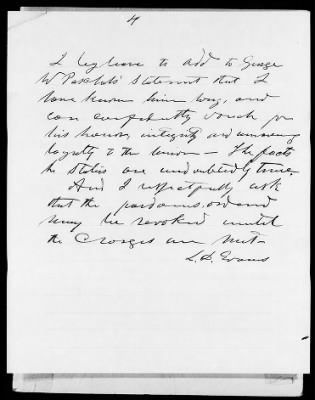 4
I beg leave to add to George
W Paschal's statement that I
have known him long, and
can confidently vouch for
his honor, integrity and unswerving
loyalty to the union — The facts
he states are undoubtedly true —
And I respectfully ask
that the pardons ordered
may be revoked until
the Charges are met —
L. D. Evans